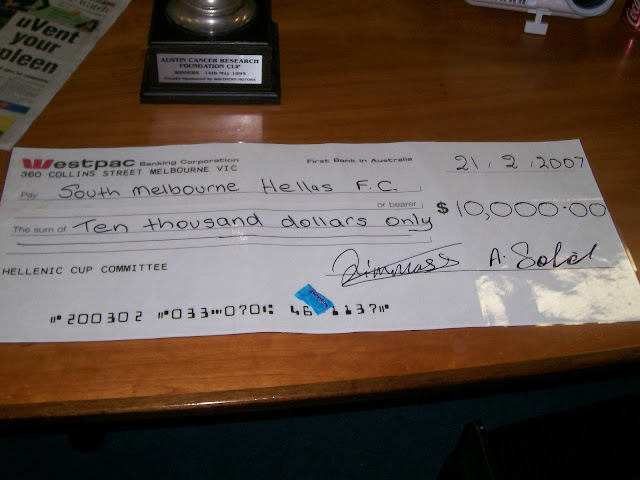 uVent
your
spleen
AUSTIN CANCER RESEARCH
FOUNDATION CUP
WINNERS 14th May 1995
Westpac Banking Corporation
First Bank in Australia
21.2.2007
360 COLLINS STREET MELBOURNE VIC
Pay South Melbourne Hellas F.C.
or bearer
The sum of Ten thousand dollars only
$ 10,000.00
HELLENIC CUP COMMITTEE
⑈200302 ⑈033⑉070⑆ 46 1137⑈